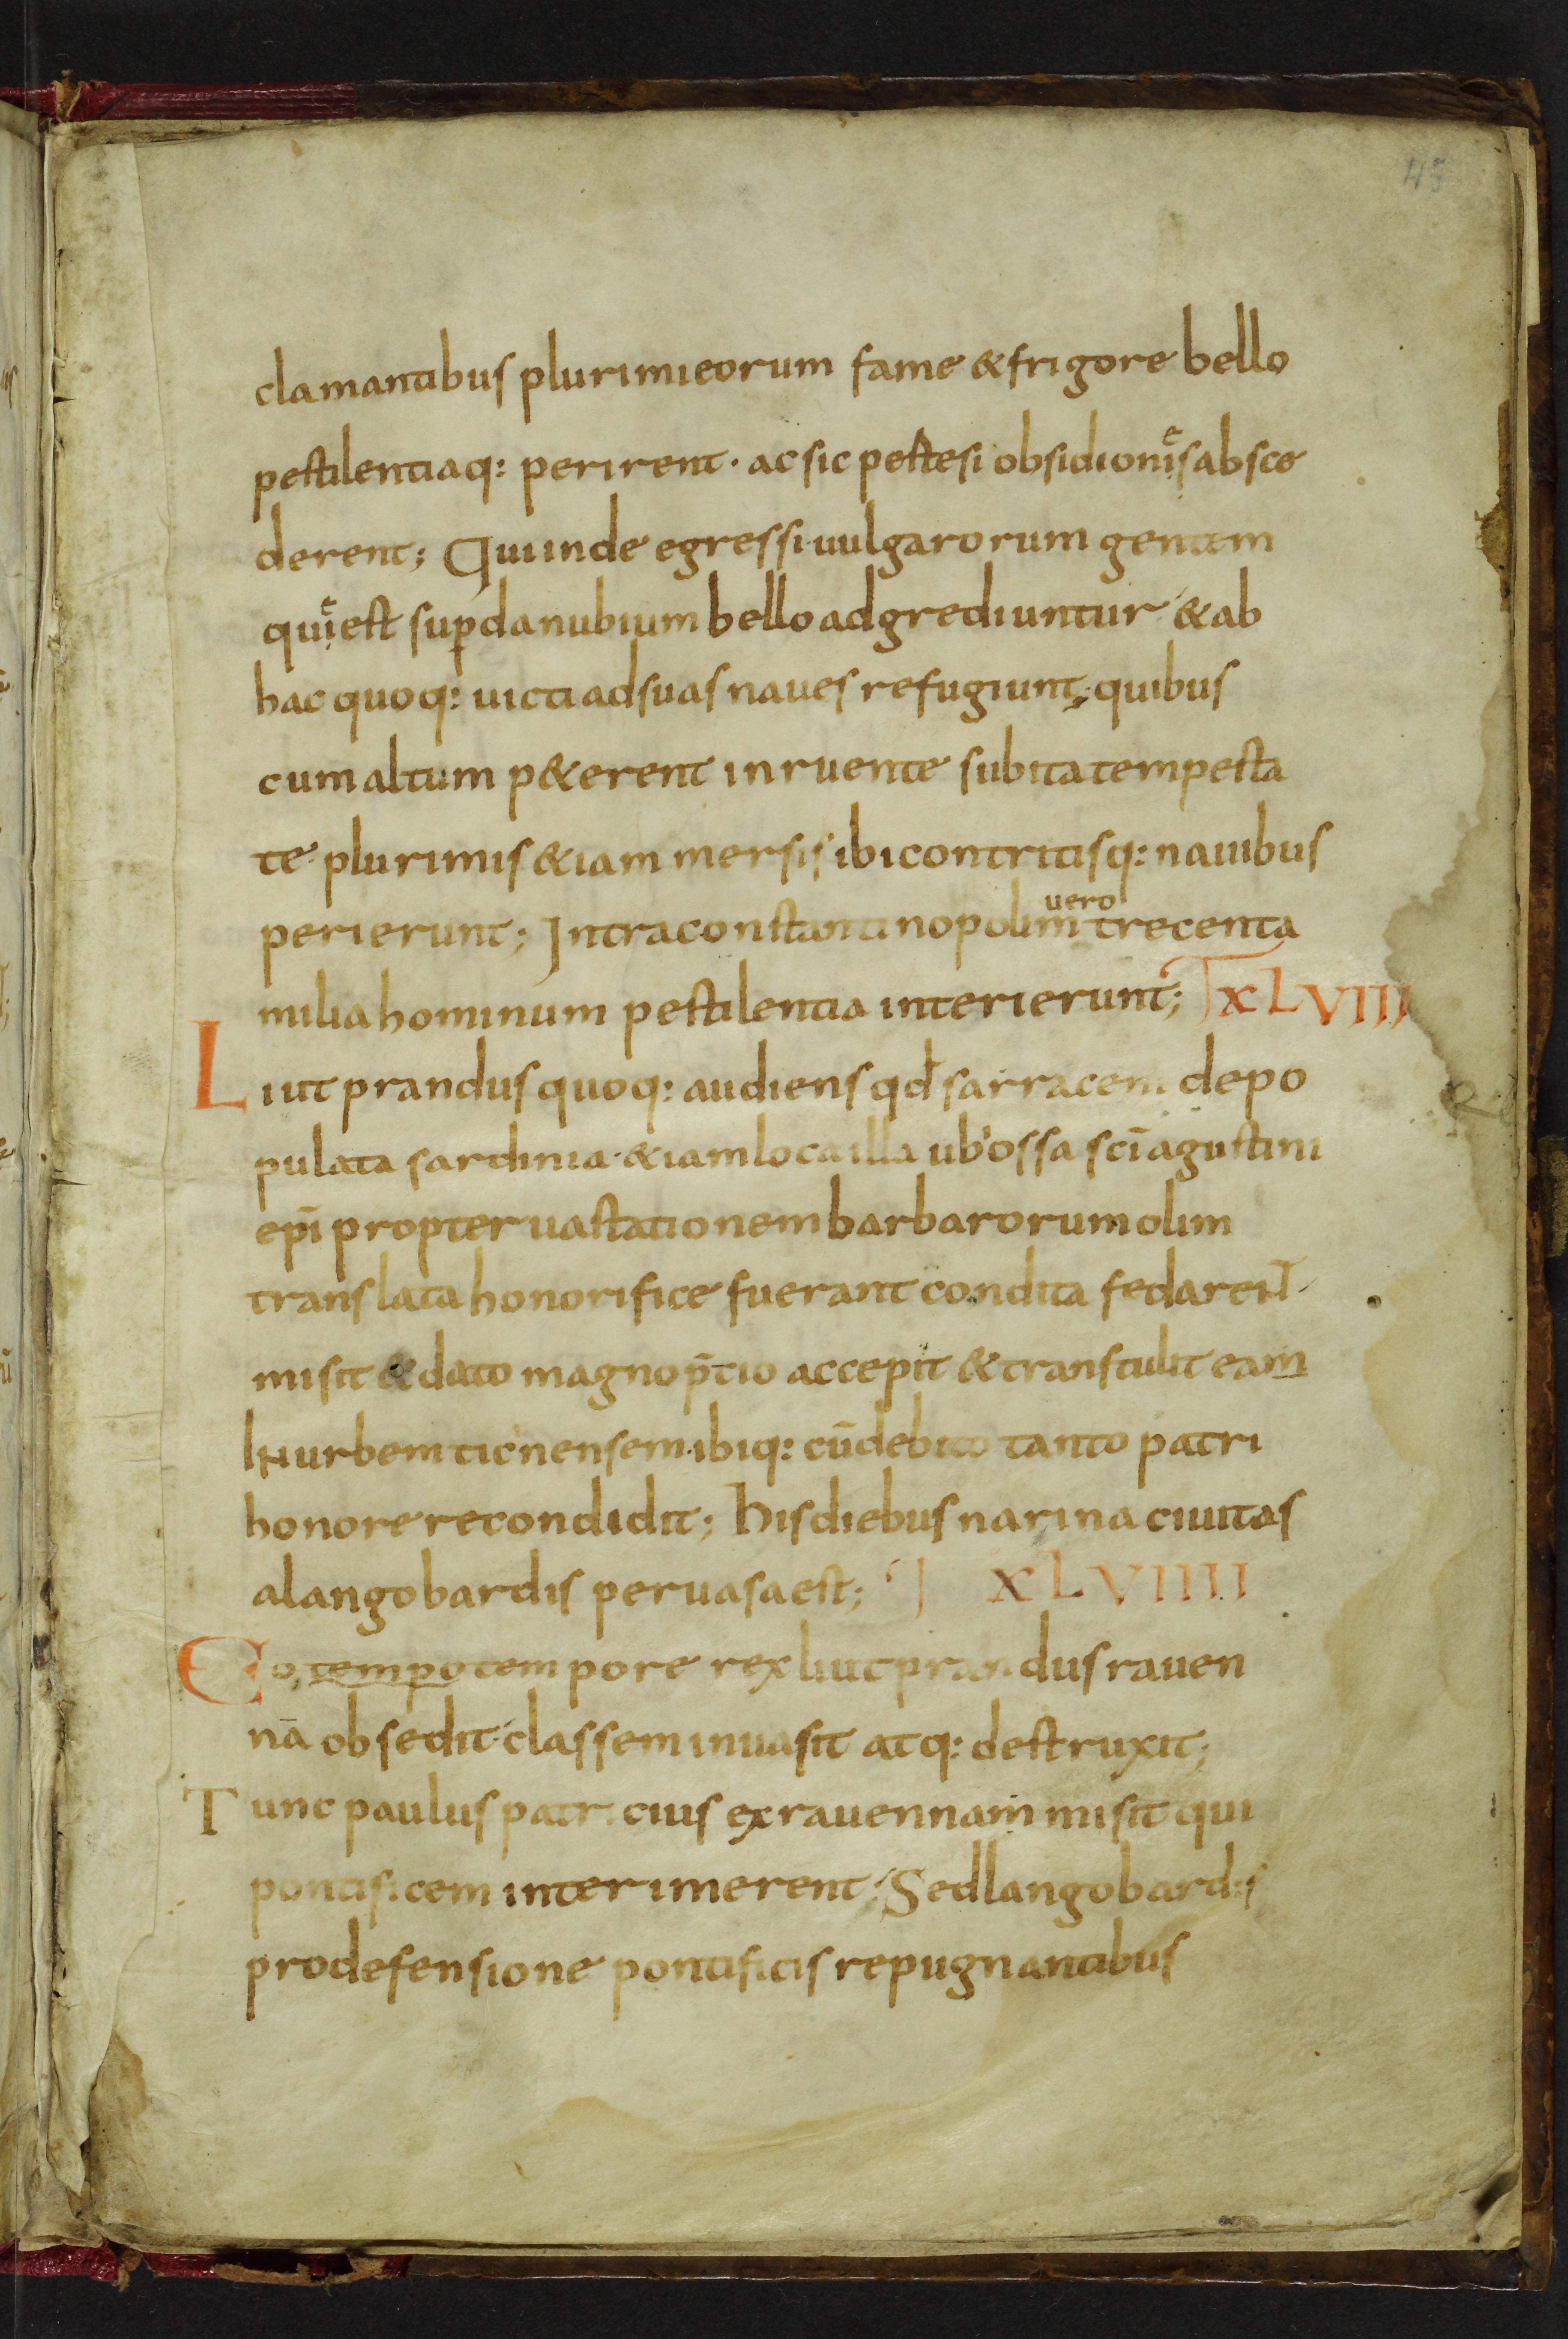 45
clamantibus plurimi eorum fame & frigore bello
pestilentiaq: perirent · ac sic pestesi obsidionı̣ͤs absce
derent; Qui inde egressi uulgarorum gentem
quı̣ͤ est sup danubium bello adgrediuntur · & ab
hac quoq: uicti ad suas naues refugiunt; quibus
cum altum p&erent inruente subita tempesta
te · plurimis &iam mersis ibi contritisq: nauibus
perierunt; Intra constantinopolim uero trecenta
milia hominum pestilentia interierunt; XLVIII
Liutprandus quoq: audiens qđ sarraceni depo
pulata sardinia · &iam loca illa ub' ossa sci̅ agustini
epi̅ propter uastationem barbarorum olim
translata honorifice fuerant condita fedarent ·
misit & dato magno p̅tio accepit & transtulit eam
In urbem ticnensem · ibiq: cu̅ debito tanto patri
honore recondidit; his diebus narina ciuitas
a langobardis peruasa est; XLVIIII
Eo tempo tempore rex liutprandus rauen
na̅ obsedit · classem inuasit atq: destruxit;
Tunc paulus patricius ex rauennam misit qui
pontificem interimerent · Sed langobardis
pro defensione pontificis repugnantibus